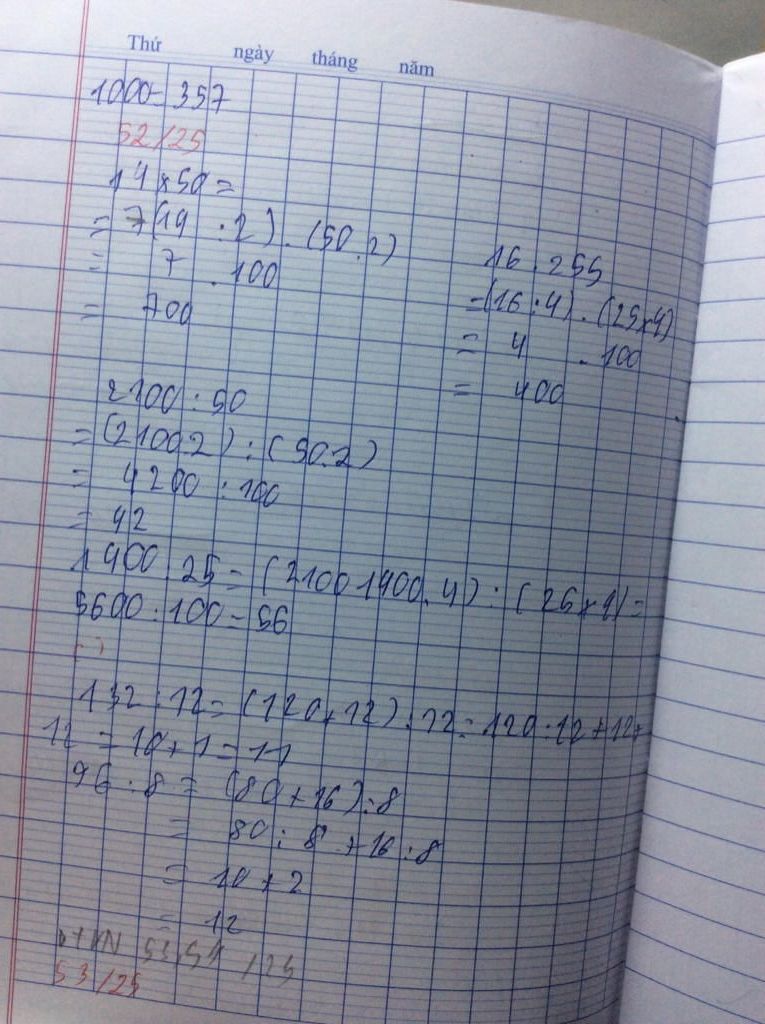 Thứ ngày tháng năm
1000 - 357
52/25
14 x 50 =
= 7(14 : 2) . (50 . 2)
= 7 . 100
= 700
16 . 255
= (16 : 4) . (25 x 4)
= 4 . 100
= 400
2100 : 50
= (2100.2) : (50.2)
= 4200 : 100
= 42
1400 : 25 = (2100 1400 . 4) : (25 x 4) =
5600 : 100 = 56
132 : 12 = (120 + 12) : 12 = 120 : 12 + 12 :
12 = 10 + 1 = 11
96 : 8 = (80 + 16) : 8
= 80 : 8 + 16 : 8
= 10 + 2
= 12
BTVN 53,54 /25
53/25